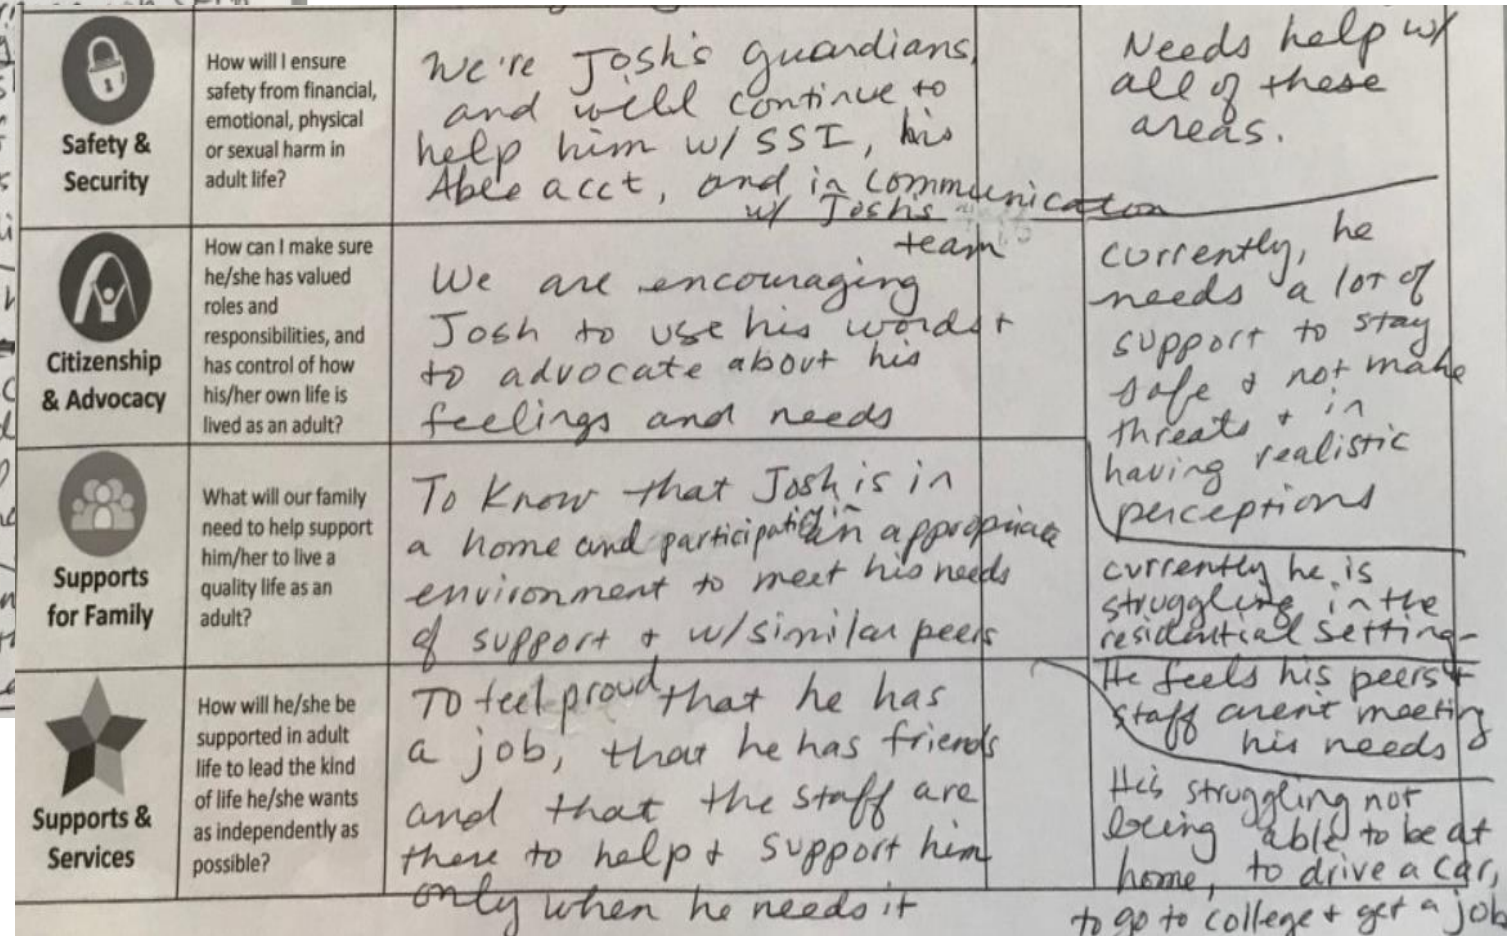 Safety &
Security
How will I ensure
safety from financial,
emotional, physical
or sexual harm in
adult life?
We're Josh's guardians,
and will continue to
help him w/ SSI, his
Able acct, and in communication
w/ Josh's
team
Needs help w/
all of these
areas.
Citizenship
& Advocacy
How can I make sure
he/she has valued
roles and
responsibilities, and
has control of how
his/her own life is
lived as an adult?
We are encouraging
Josh to use his words +
to advocate about his
feelings and needs
currently, he
needs a lot of
support to stay
safe & not make
threats & in
having realistic
perceptions
Supports
for Family
What will our family
need to help support
him/her to live a
quality life as an
adult?
To know that Josh is in
a home and participating in
environment to meet his needs
of support + w/similar peers
currently he is
struggling in the
residential setting-
He feels his peers +
staff aren't meeting
his needs
Supports &
Services
How will he/she be
supported in adult
life to lead the kind
of life he/she wants
as independently as
possible?
To feel proud that he has
a job, that he has friends
and that the staff are
there to help & support him
only when he needs it
He's struggling not
being able to be at
home, to drive a car,
to go to college + get a job